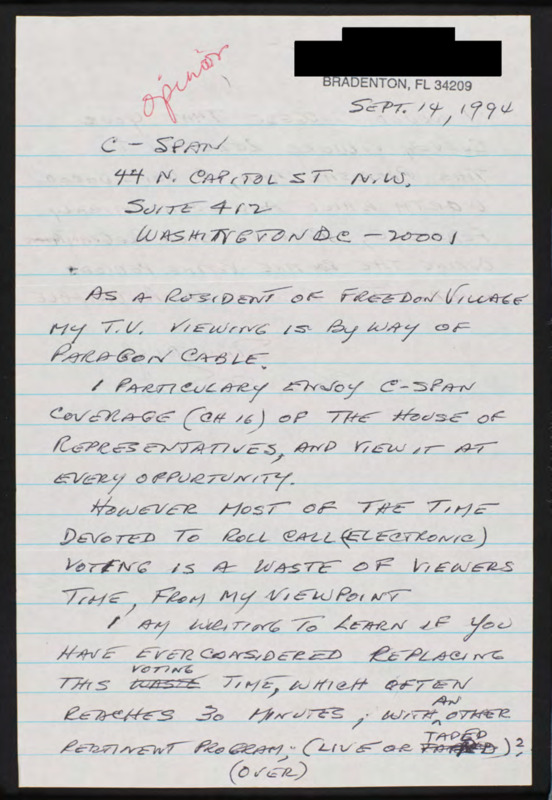 opinion
BRADENTON, FL 34209
SEPT. 14, 1994
C-SPAN
44 N. CAPITOL ST N.W.
SUITE 412
WASHINGTON DC - 20001
AS A RESIDENT OF FREEDON VILLAGE
MY T.V. VIEWING IS BY WAY OF
PARAGON CABLE.
I PARTICULARY ENJOY C-SPAN
COVERAGE (CH 16) OF THE HOUSE OF
REPRESENTATIVES, AND VIEW IT AT
EVERY OPPURTUNITY.
HOWEVER MOST OF THE TIME
DEVOTED TO ROLL CALL (ELECTRONIC)
VOTING IS A WASTE OF VIEWERS
TIME, FROM MY VIEWPOINT
I AM WRITING TO LEARN IF YOU
HAVE EVER CONSIDERED REPLACING
THIS WASTE VOTING TIME, WHICH OFTEN
REACHES 30 MINUTES, WITH AN OTHER
PERTINENT PROGRAM, (LIVE OR TAPED)?
(OVER)